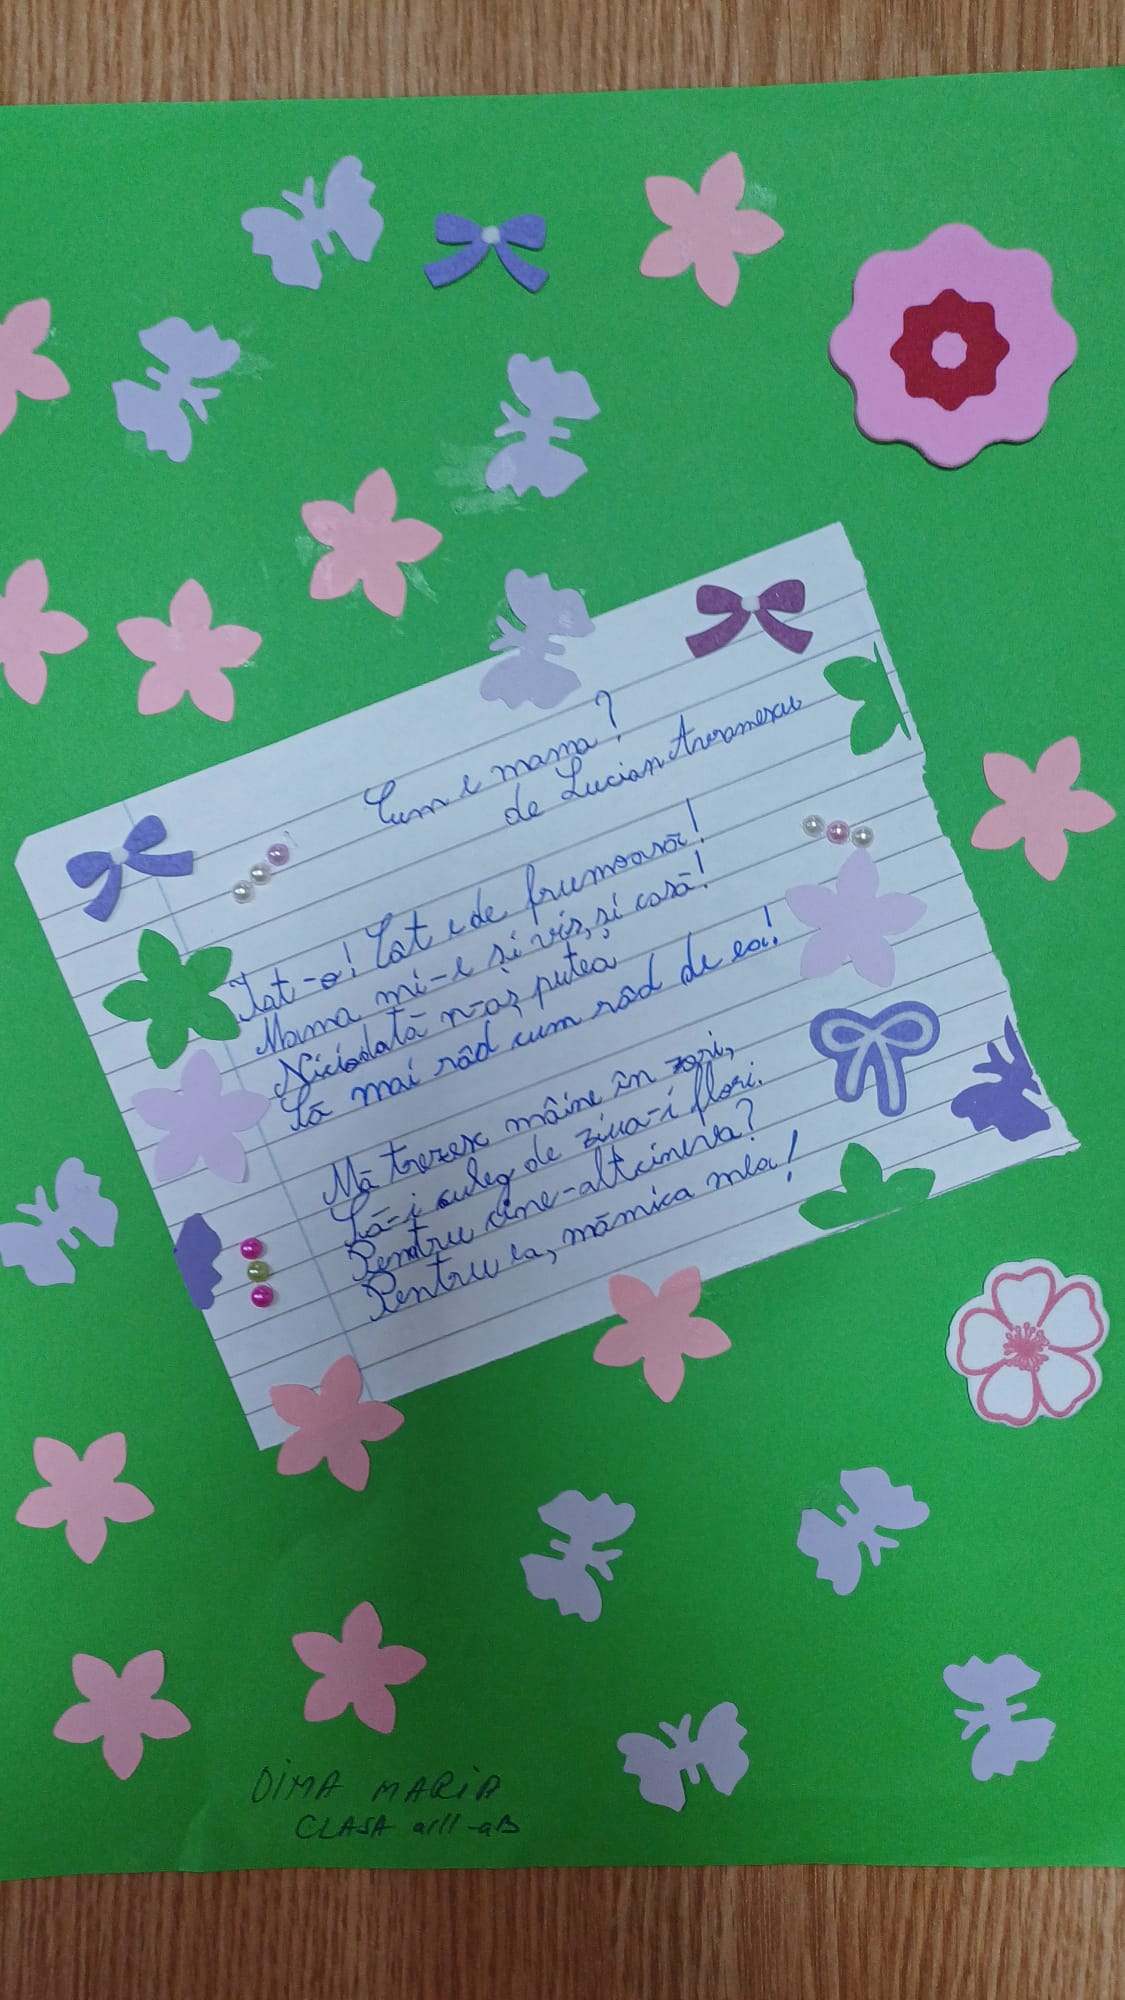 Cum e mama?
de Lucian Avramescu
Iat-o! Cât e de frumoasă!
Mama mi-e și vis, și casă!
Niciodată n-aș putea
Să mai râd cum râd de ea!
Mă trezesc mâine în zori,
Să-i culeg de ziua-i flori.
Pentru cine-altcineva?
Pentru ea, mămica mea!
DIMA MARIA
CLASA a III-aB